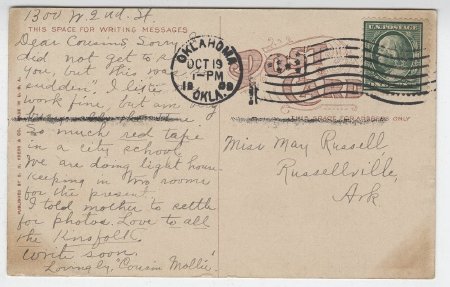 1300 W. 2nd St.
THIS SPACE FOR WRITING MESSAGES
Dear Cousins, Sorry I
did not get to
you, but this was
sudden. I like
work fine, but am
so much red tape
in a city school
We are doing light house-
keeping in two rooms
for the present.
I told mother to settle
for photos. Love to all
the Kinsfolk.
Write soon.
Lovingly, "Cousin Mollie"
OKLAHOMA
OCT 19
1-PM
1909
OKLA.
POST
CARD
U.S. POSTAGE
THIS SPACE FOR ADDRESS ONLY
Miss May Russell
Russellville,
Ark